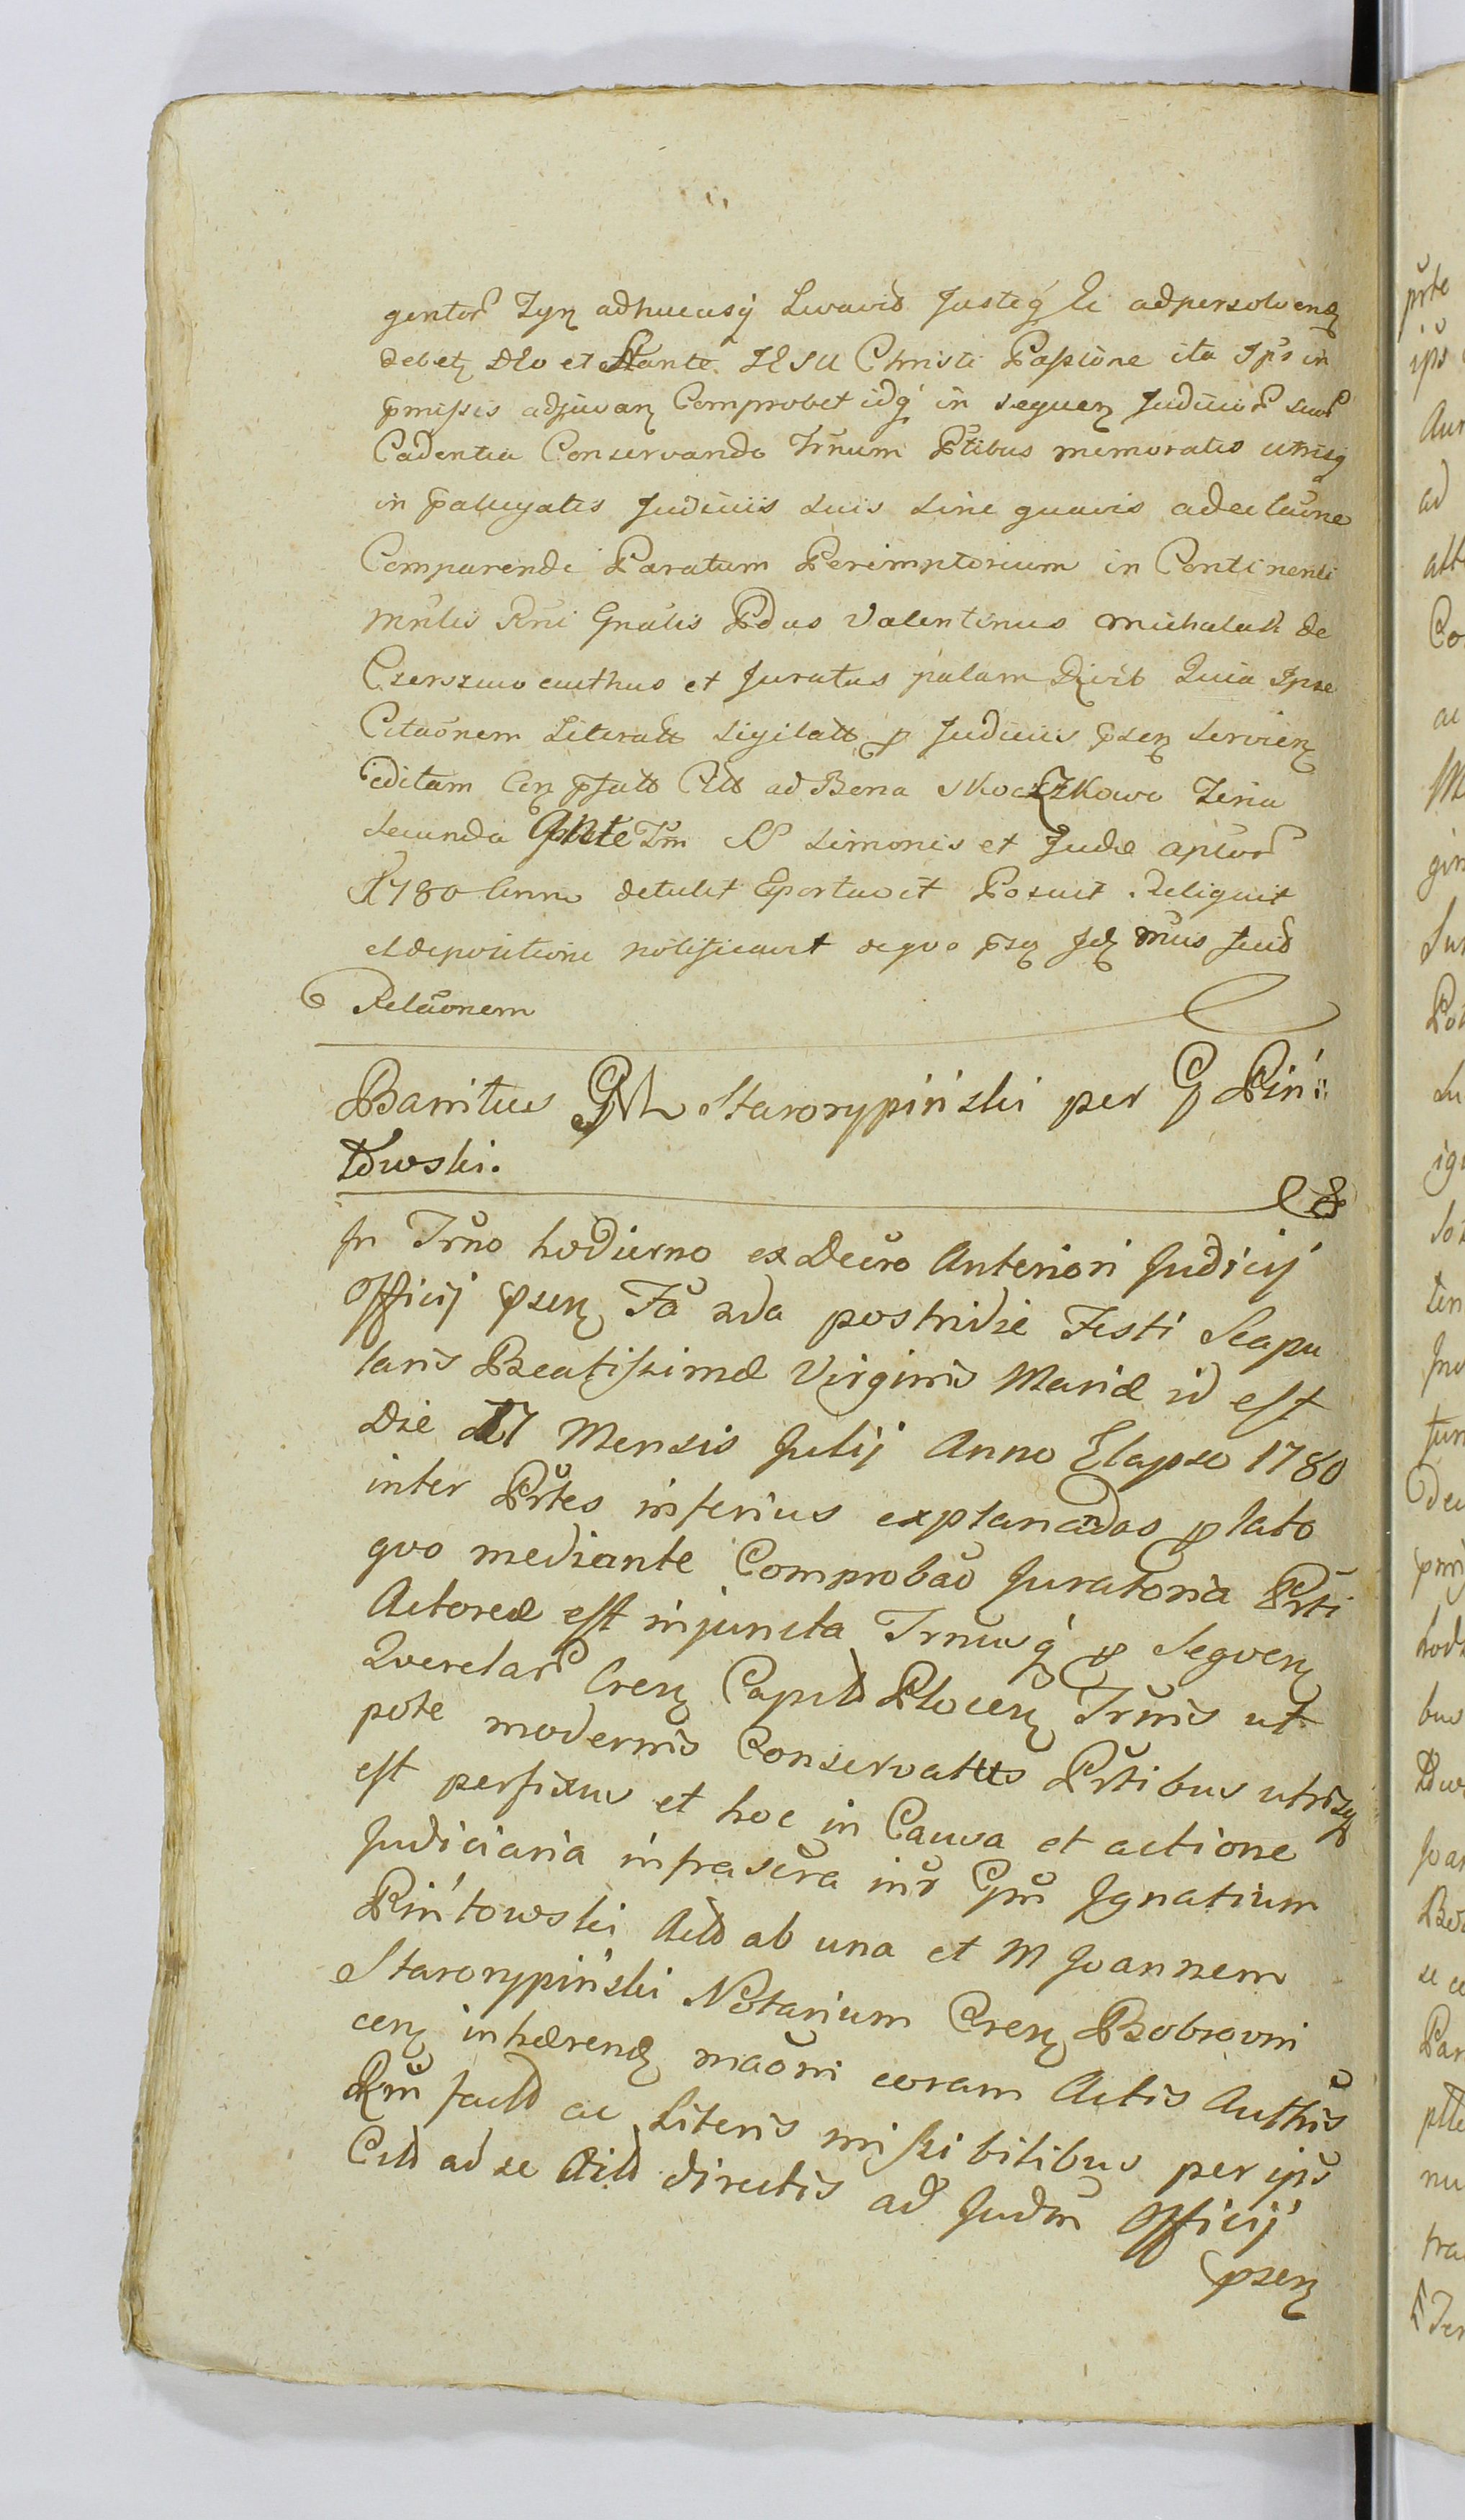 gentor Tyn adhucusq Levavit Justeq Ei adpersolvend
debet Deo et Sancte JESU Christi Passione ita Ips in
pmissis adjuvan Comprobet idq in sequen Judicior suor
Cadentia Conservando Trnum Ptibus memoratis utrisq
in pallegatis Judiciis suis sine quavis adcitaone
Comparendi Paratum Peremptorium in Continenti
Mrlis Rni Gnalis Pdus Valentinus Michalak de
Czerszewo authus et Juratus palam Dixit Quia Ipse
Citaonem Literatt Sigilatt p Judiciis psen Servien
editam Cen pfatt Citt ad Bona Skoczkowo Feria
Secunda Ante Fm SS Simonis et Judæ aplor
1780 Anno detulit Eportavit Posuit Reliquit
et depositione notificavit de quo psen fec suus Jud
Relaonem
Banitus GM Starorypiński per G Piń
towski.
In Trno hodierno ex Decro Anteriori Judicij
Officij psen Fa 2da postridie Festi Scapu
laris Beatissimæ Virginis Mariæ id est
Die 17 Mensis Julij Anno Elapso 1780
inter Prtes inferius explanadas plato
quo mediante Comprobao Juratoria Prti
Actoreæ est injuncta Trnusq p Sequen
Querelar Cren Capitt Plocen Trnis ut
pote modernis Conservattis Prtibus utrisq
est perfixus et hoc in Causa et actione
Judiciaria infrascra inr Gm Ignatium
Pińtowski Actt ab una et M Joannem
Starorypiński Notarium Cren Bobrovni
cen inhærend maoni coram Actis Authis
Rm factt ac Literis missibilibus per ips
Citt ad se Actt directis ad Judm Officij
psen